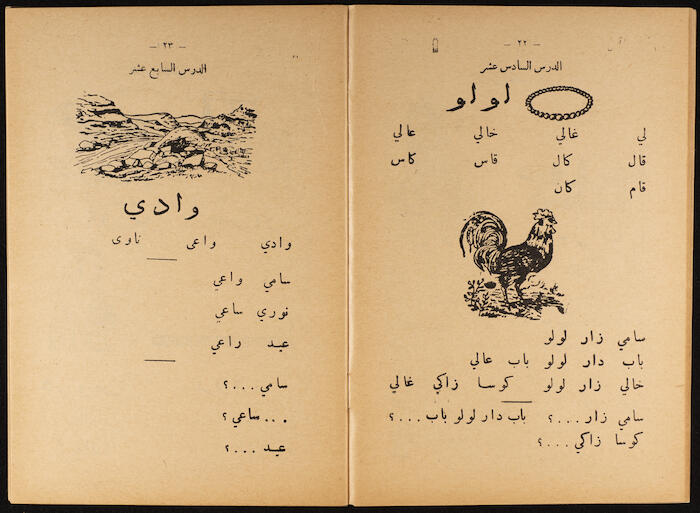 – ٢٢ –
الدرس السادس عشر
لولو
لي غالي خالي عالي
قال كال قاس كاس
قام كان
سامي زار لولو
باب دار لولو باب عالي
خالي زار لولو كوسا زاكي غالي
سامي زار...؟ باب دار لولو باب...؟
كوسا زاكي...؟
– ٢٣ –
الدرس السابع عشر
وادي
وادي واعي ناوي
سامي واعي
نوري ساعي
عيد راعي
سامي...؟
...ساعي؟
عيد...؟